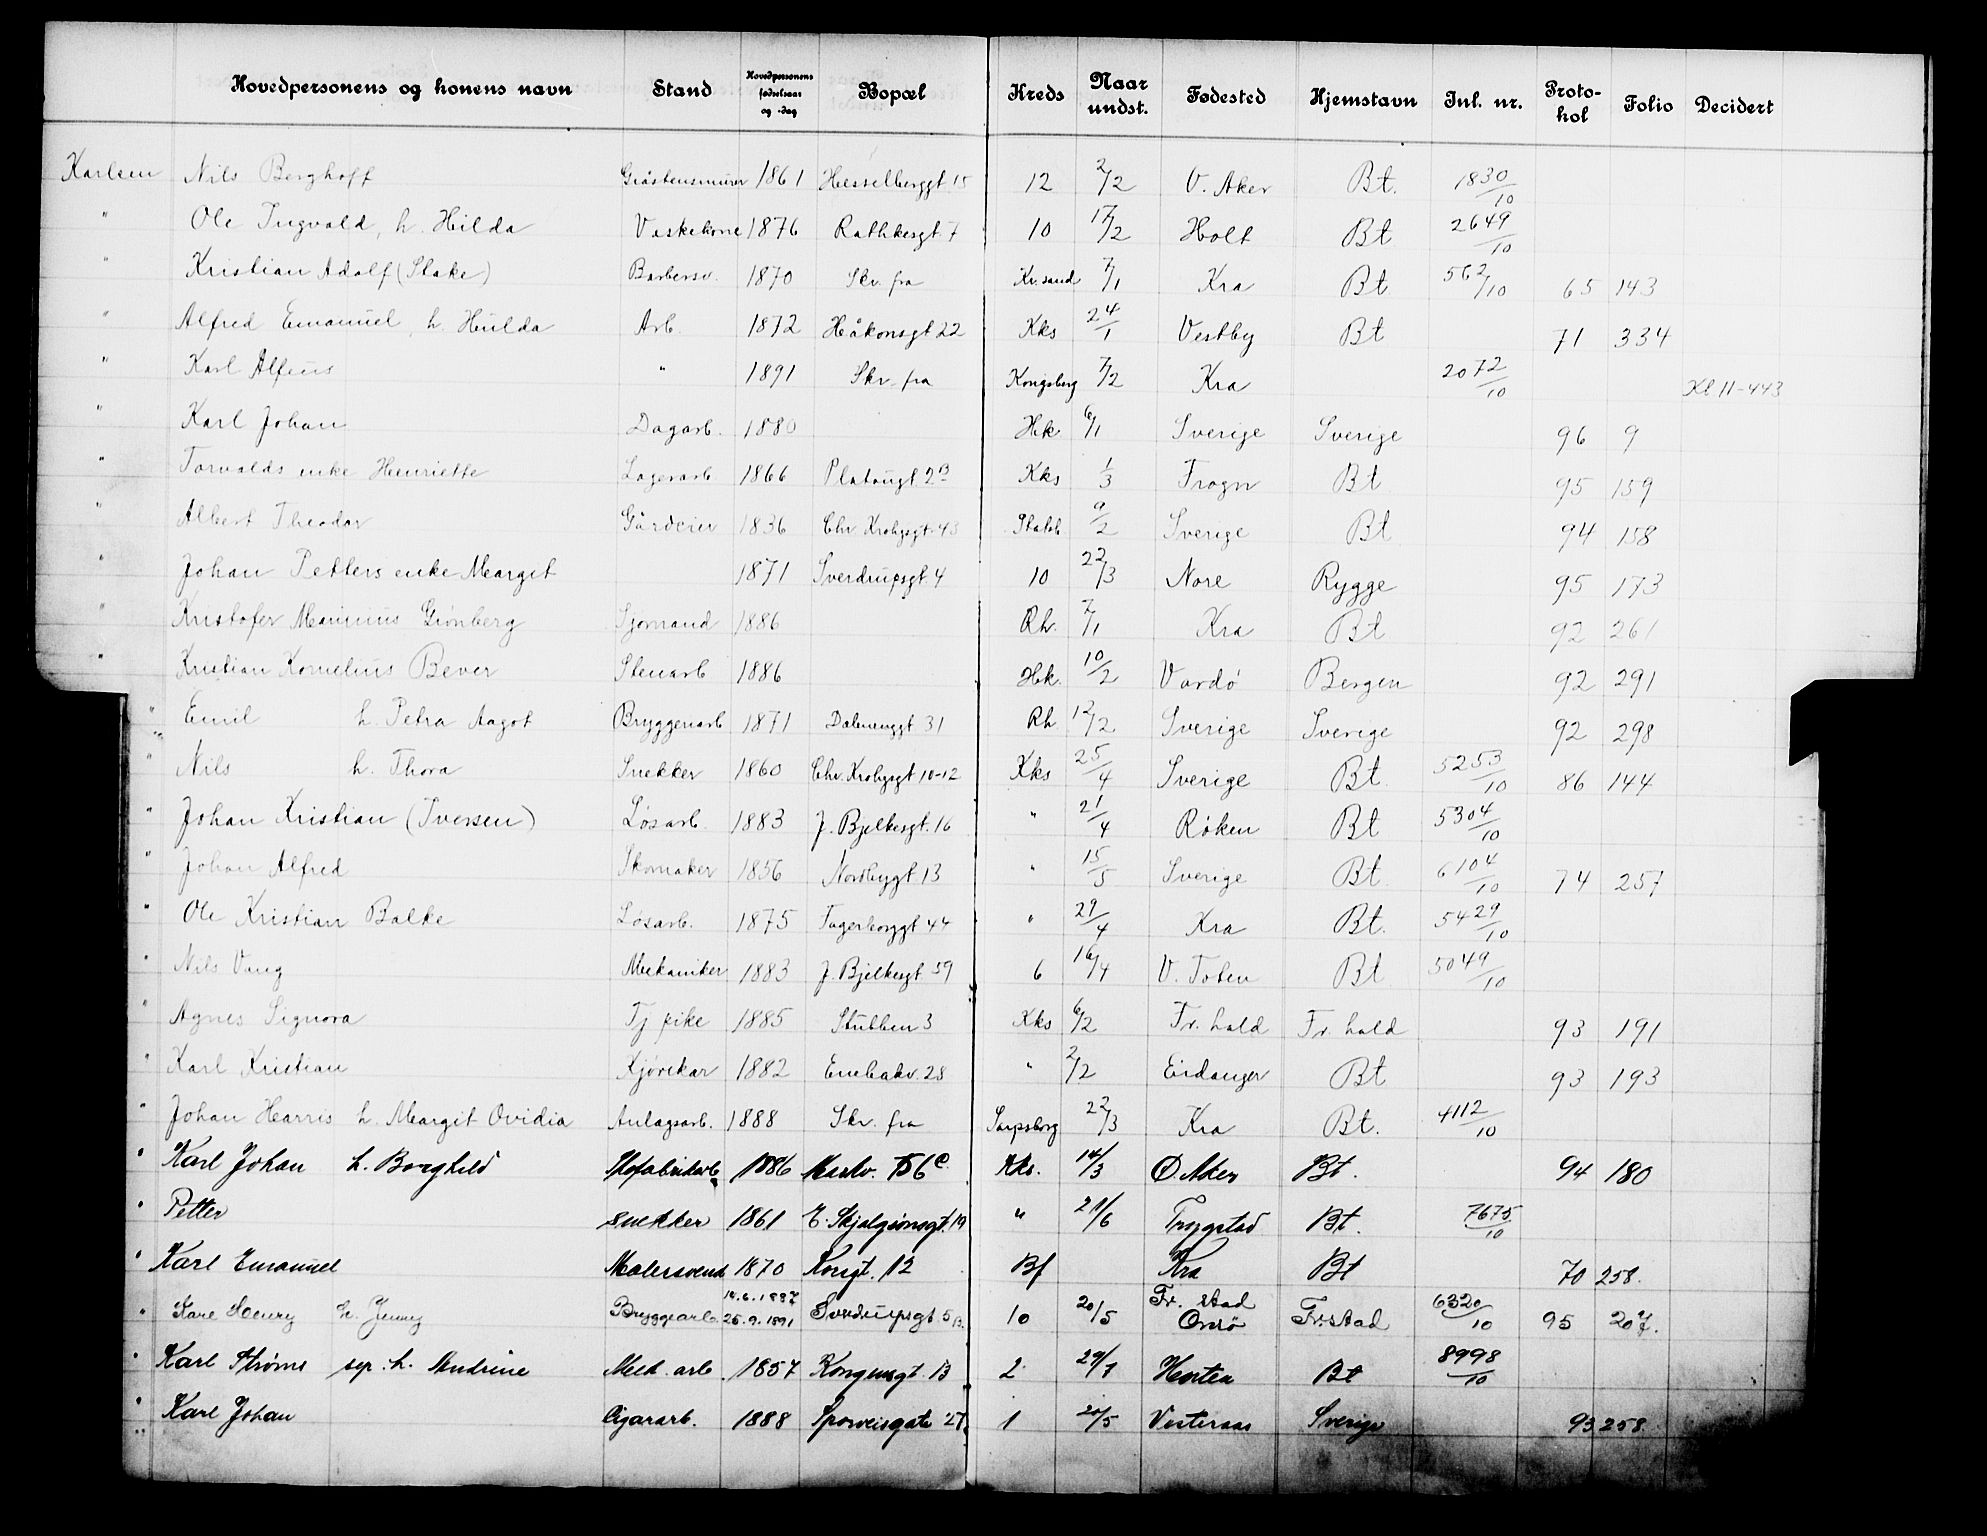 Hovedpersonens og konens navn Stand Hovedpersonens fødselsaar og -dag Bopæl Kreds Naar undst. Fødested Hjemstavn Inl. nr. Protokol Folio Decidert
Karlsen Nils Berghoff Gråstensmurer 1861 Hesselberggt 15 12 2/2 V. Aker Bt. 1830/10
" Ole Ingvald, h. Hilda Vaskekone 1876 Rathkesgt. 7 10 17/2 Holt Bt 2649/10
" Kristian Adolf (Slake) Barbersv. 1870 Skr. fra Kr.sand 7/1 Kra Bt 562/10 65 143
" Alfred Emanuel, h. Hulda Arb. 1872 Håkonsgt 22 Kks 24/1 Vestby Bt 71 334
" Karl Alfeus " 1891 Skr. fra Kongsberg 7/2 Kra 2072/10 Kl. 11-443
" Karl Johan Dagarb. 1880 Hk 6/1 Sverige Sverige 96 9
" Torvalds enke Henriette Lagerarb 1866 Platougt 2B Kks 1/3 Frogn Bt 95 159
" Albert Theodor Gårdeier 1836 Chr Krohgsgt. 43 9/2 Sverige Bt 94 158
" Johan Petters enke Margit 1871 Sverdrupsgt. 4 10 22/3 Nore Rygge 95 173
" Kristofer Grønberg Sjømand 1886 Rh. 7/1 Kra Bt 92 261
" Kristian Kornelius Bever Stenarb 1886 Hk. 10/2 Vardø Bergen 92 291
" Emil h. Petra Aagot Bryggeriarb 1871 Dælenenggt 31 Rh 12/2 Sverige Sverige 92 298
" Nils h. Thora Snekker 1860 Chr. Krohgsgt 10-12 Kks 25/4 Sverige Bt. 5253/10 86 144
" Johan Kristian (Iversen) Løsarb. 1883 J. Bjelkesgt. 16 " 21/4 Røken Bt 5304/10
" Johan Alfred Skomaker 1856 Nordbygt. 13 " 15/5 Sverige Bt. 6104/10 74 257
" Ole Kristian Balke Løsarb. 1875 Fagerborggt 44 " 29/4 Kra Bt. 5429/10
" Nils Vang Mekaniker 1883 J. Bjelkesgt 59 6 16/4 V. Toten Bt 5049/10
" Agnes Signora Tj pike 1885 Stubben 3 Kks 6/2 Fr. hald Fr. hald 93 191
" Karl Kristian Kjørekar 1882 Enebakv. 28 " 2/2 Eidanger Bt 93 193
" Johan Harris h. Margit Ovidia Anlagsarb. 1888 Skr. fra Sarpsborg 22/3 Kra Bt. 4112/10
" Karl Johan h. Borghild Skofabrikarb 1886 Maridv. 156 C. Kks. 14/3 Ø. Aker Bt. 94 180
" Petter Snekker 1861 E. Skjalgsønsgt. 19 " 21/6 Trøgstad Bt. 7675/10
" Karl Emanuel Malersvend 1870 Kongt. 12 Bf Kra Bt 70 258.
" Kare Henry h. Jenny Bryggearb. 14.6.1887 25.9.1891 Sverdrupsgt. 5 B. 10 20/5 Fr. stad Onsø Fr.stad 6320/10 95 207.
" Karl Strøms sep. h. Andrine Mek. arb. 1857 Kongensgt. 13 2 29/7 Horten Bt 8998/10
" Karl Johan Cigararb. 1888 Sporveisgate 27. 1 20/5 Vesteraas Sverige 93 258.